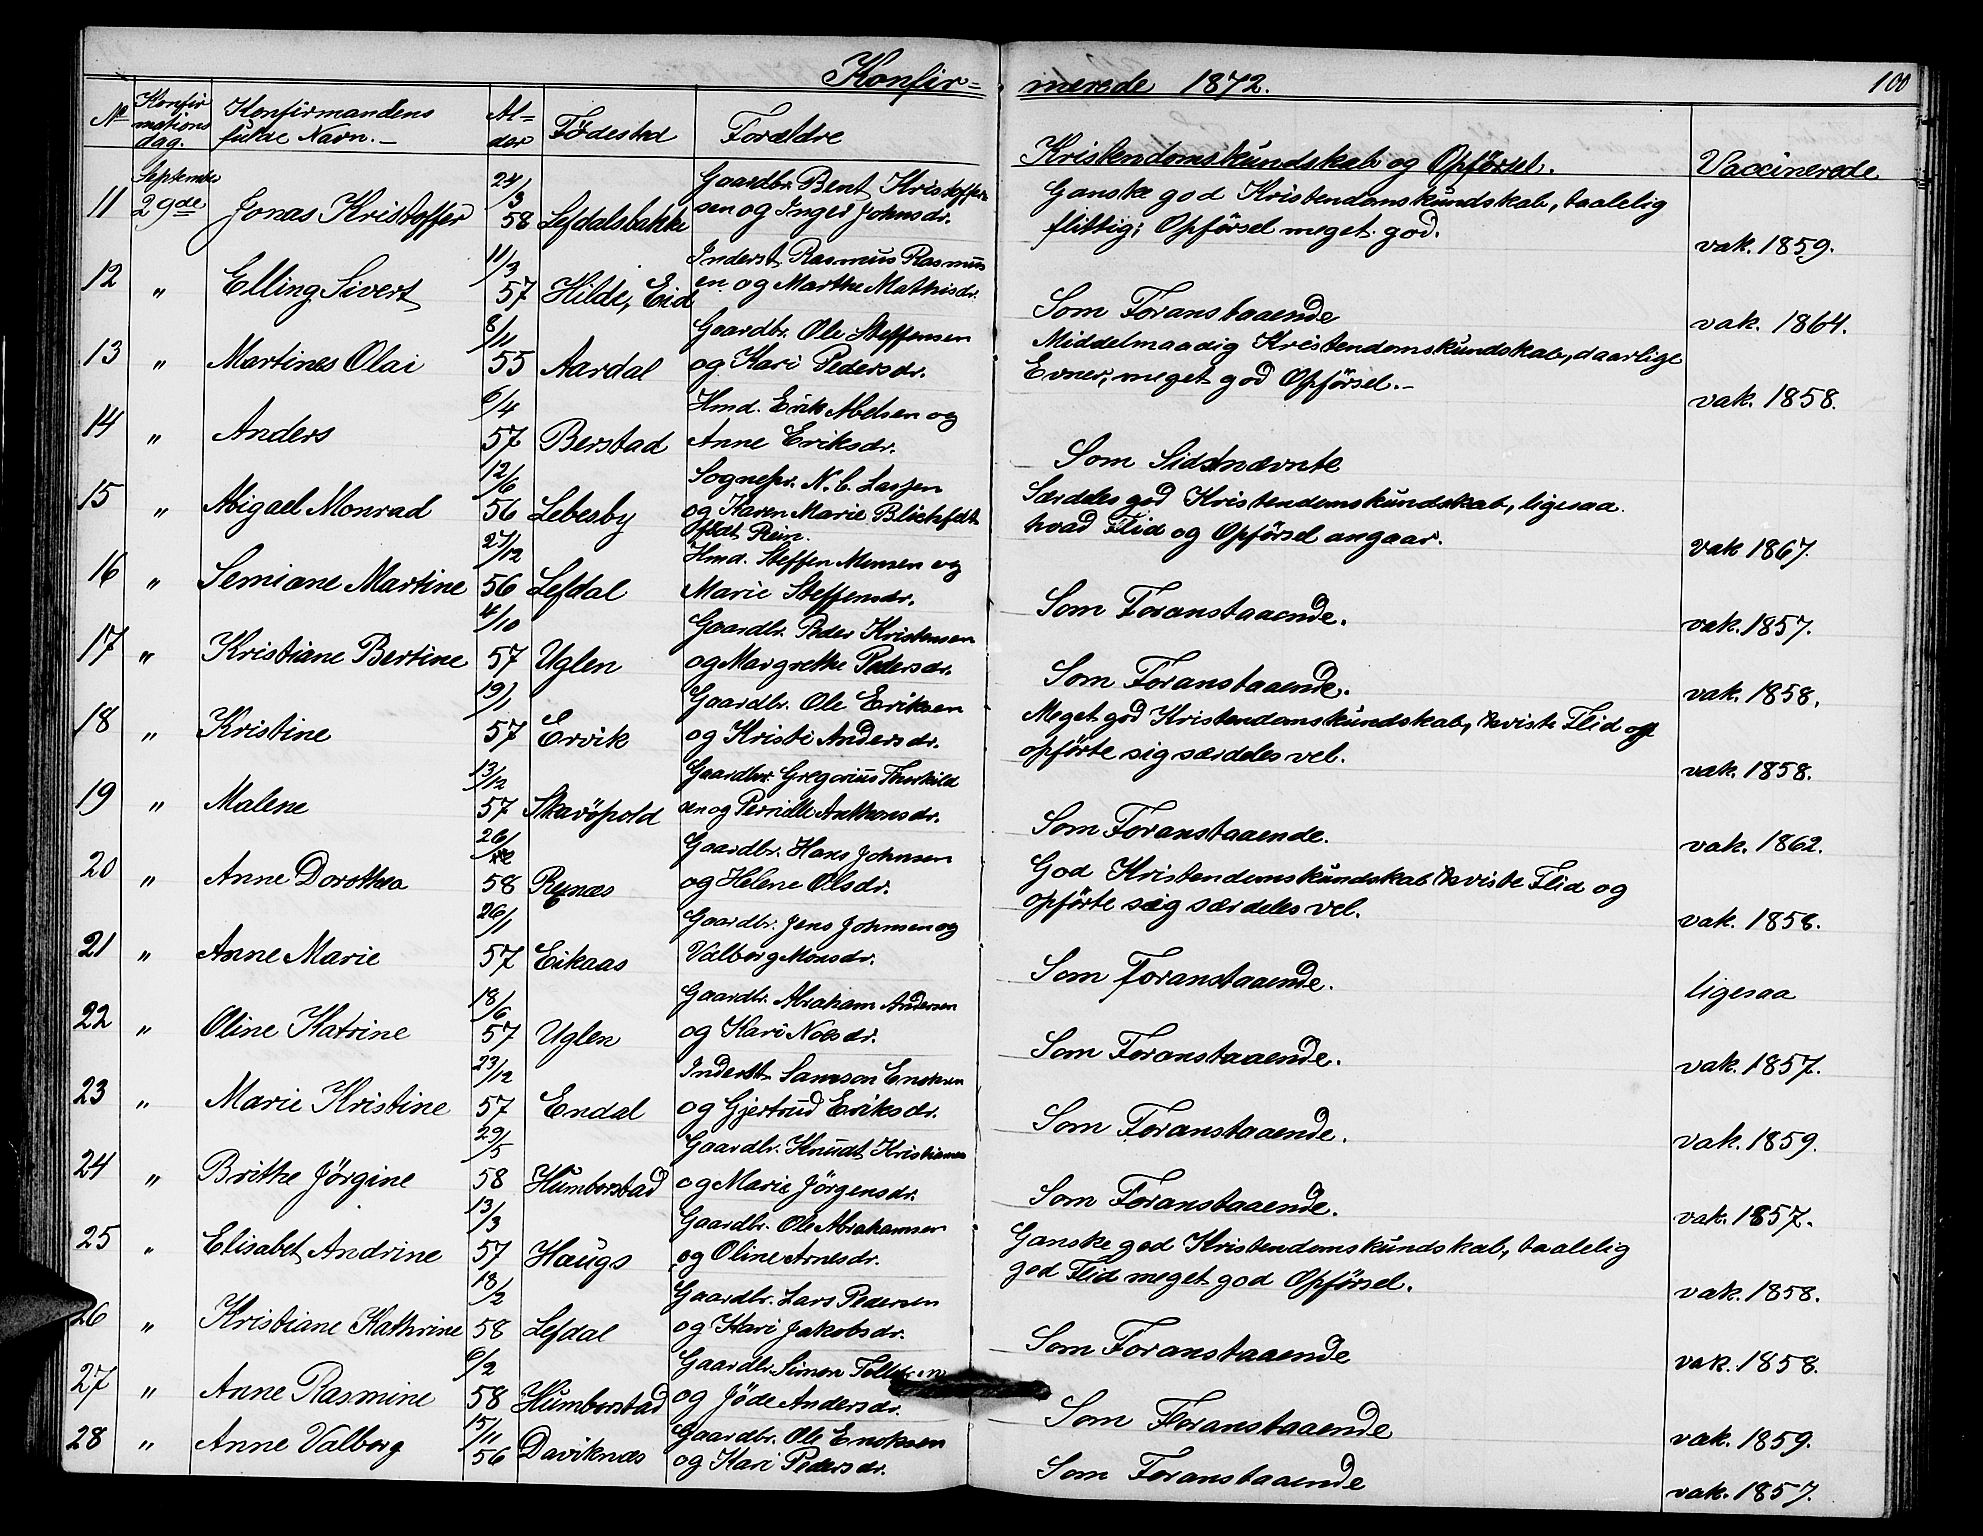 Konfir= merede 1872. 100
No Konfirmationsdag. Konfirmandens fulde Navn.— Alder Födested Forældre Kristendomskundskab og Opförsel. Vaccinerede
11 Septembr 29de Jonas Kristoffer 24/3 58 Lefdalsbakke Gaardbr. Bent Kristoffer-
sen og Inger Johnsdr. Ganske god Kristendomskundskab, taalelig
flittig; Opförsel meget god. vak. 1859.
12 " Elling Sivert 11/3 57 Hilde, Eid Inderst Rasmus Rasmus
en og Marthe Mathisdr. Som Foranstaaende vak. 1864.
13 " Martines Olai 8/11 55 Aardal Gaardbr. Ole Steffensen
og Kari Pedersdr. Middelmaadig Kristendomskundskab, daarlige
Evner, meget god Opförsel.— vak. 1858.
14 " Anders 6/4 57 Berstad Hmd. Erik Abelsen og
Anne Eriksdr. Som Sidstnævnte
15 " Abigael Monrad 12/6 56 Lebesby Sognepr. N. C. Lassen
og Karen Marie
födt Rein. Særdeles god Kristendomskundskab, ligesaa
hvad Flid og Opförsel angaar. vak 1867.
16 " Semiane Martine 27/12 56 Lefdal Hmd. Steffen Monsen og
Marie Steffensdr. Som Foranstaaende. vak. 1857.
17 " Kristiane Bertine 4/10 57 Uglen Gaardbr. Peder Kristensen
og Margrethe Pedersdr. Som Foranstaaende. vak. 1858.
18 " Kristine 19/1 57 Ervik Gaardbr. Ole Eriksen
og Kristi Andersdr. Meget god Kristendomskundskab, udviste Flid og
opförte sig særdeles vel. vak. 1858.
19 " Malene 13/12 57 Skaröpold Gaardbr. Gregorius Therkild
sen og Pernille Anthonsdr. Som Foranstaaende. vak. 1862.
20 " Anne Dorothea 26/ 58 Rynæs Gaardbr. Hans Johnsen
og Helene Olsdr. God Kristendomskundskab udviste Flid og
opförte sig særdeles vel. vak. 1858.
21 " Anne Marie 26/1 57 Eikaas Gaardbr. Jens Johnsen og
Valborg Monsdr. Som foranstaaende. ligesaa
22 " Oline Katrine 18/6 57 Uglen Gaardbr. Abraham Andersen
og Kari Noesdr. Som Foranstaaende. vak. 1857.
23 " Marie Kristine 23/12 57 Endal Inderst Samson Enoksen
og Gjertrud Eriksdr. Som Foranstaaende. vak. 1859.
24 " Brithe Jörgine 29/5 58 Humborstad Gaardbr. Knudt Kristiansen
og Marie Jörgensdr. Som Foranstaaende. vak. 1857.
25 " Elisabet Andrine 13/3 57 Haugs Gaardbr. Ole Abrahamsen
og Oline Arnesdr. Ganske god Kristendomskundskab, taalelig
god Flid meget god Opförsel. vak. 1858.
26 " Kristiane Kathrine 18/2 58 Lefdal Gaardbr. Lars Pedersen
og Kari Jakobsdr. Som Foranstaaende vak. 1858.
27 " Anne Rasmine 6/2 58 Humborstad Gaardbr. Simon
og Jöde Andersdr. Som Foranstaaende vak. 1859.
28 " Anne Valborg 15/11 56 Daviknæs Gaardbr. Ole Enoksen
og Kari Pedersdr. Som Foranstaaende vak. 1857.